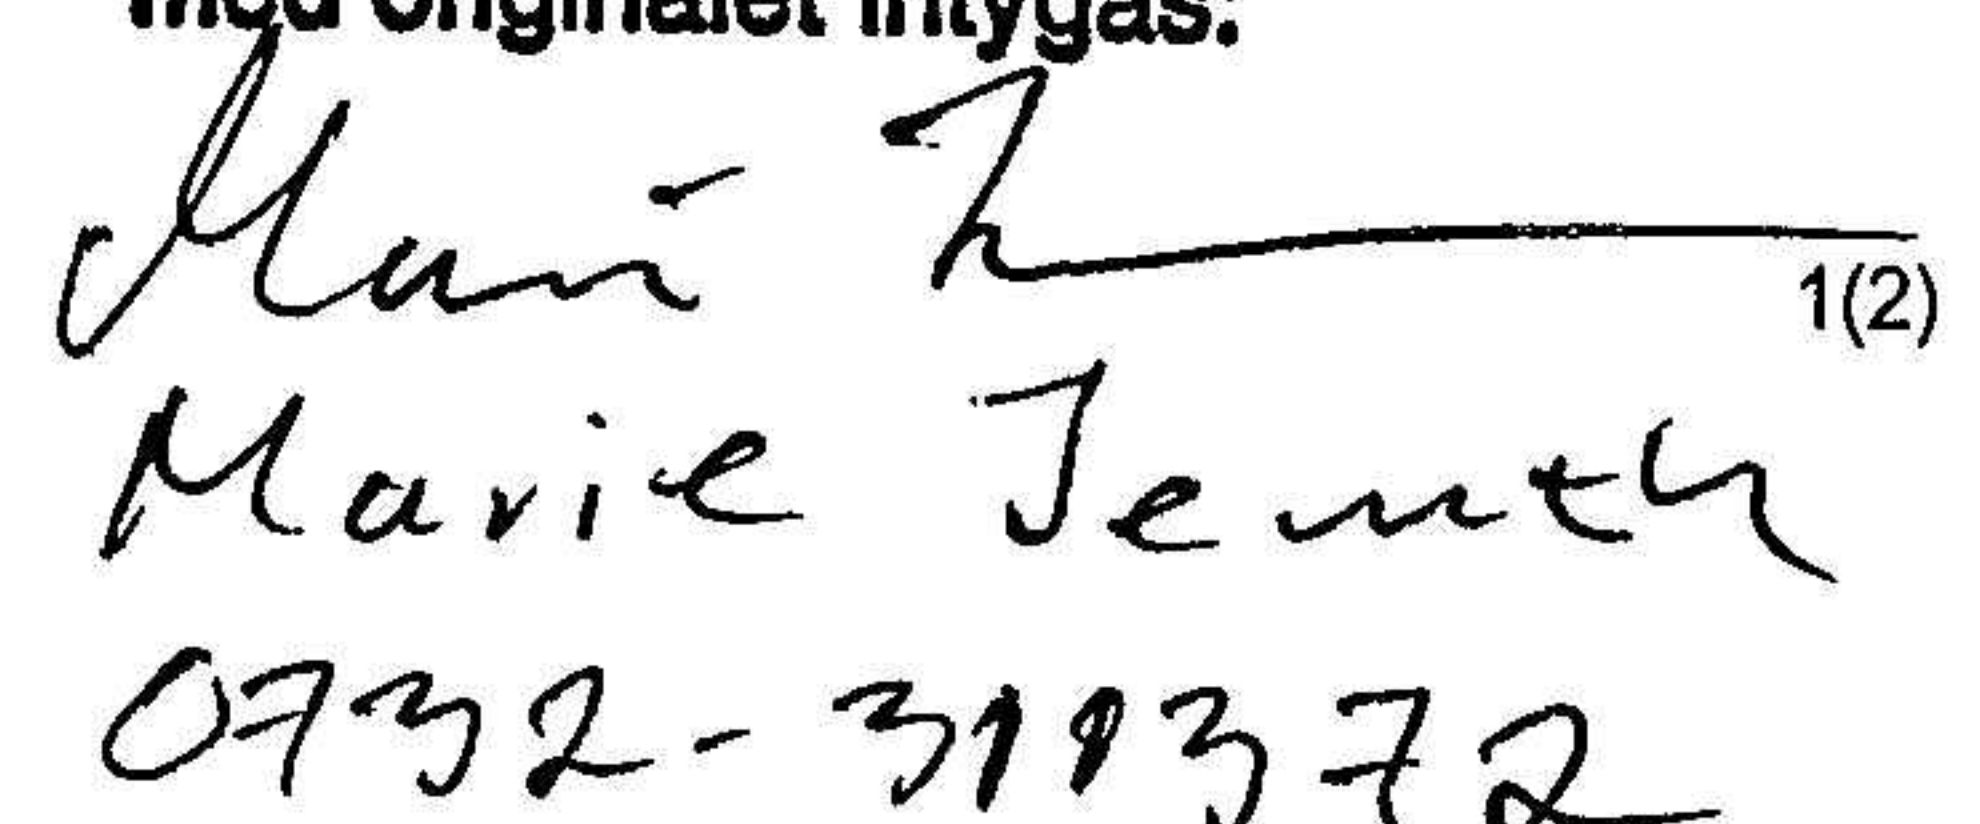 med originalet intygas:
Marie J
1(2)
Marie Jernth
0732-311372